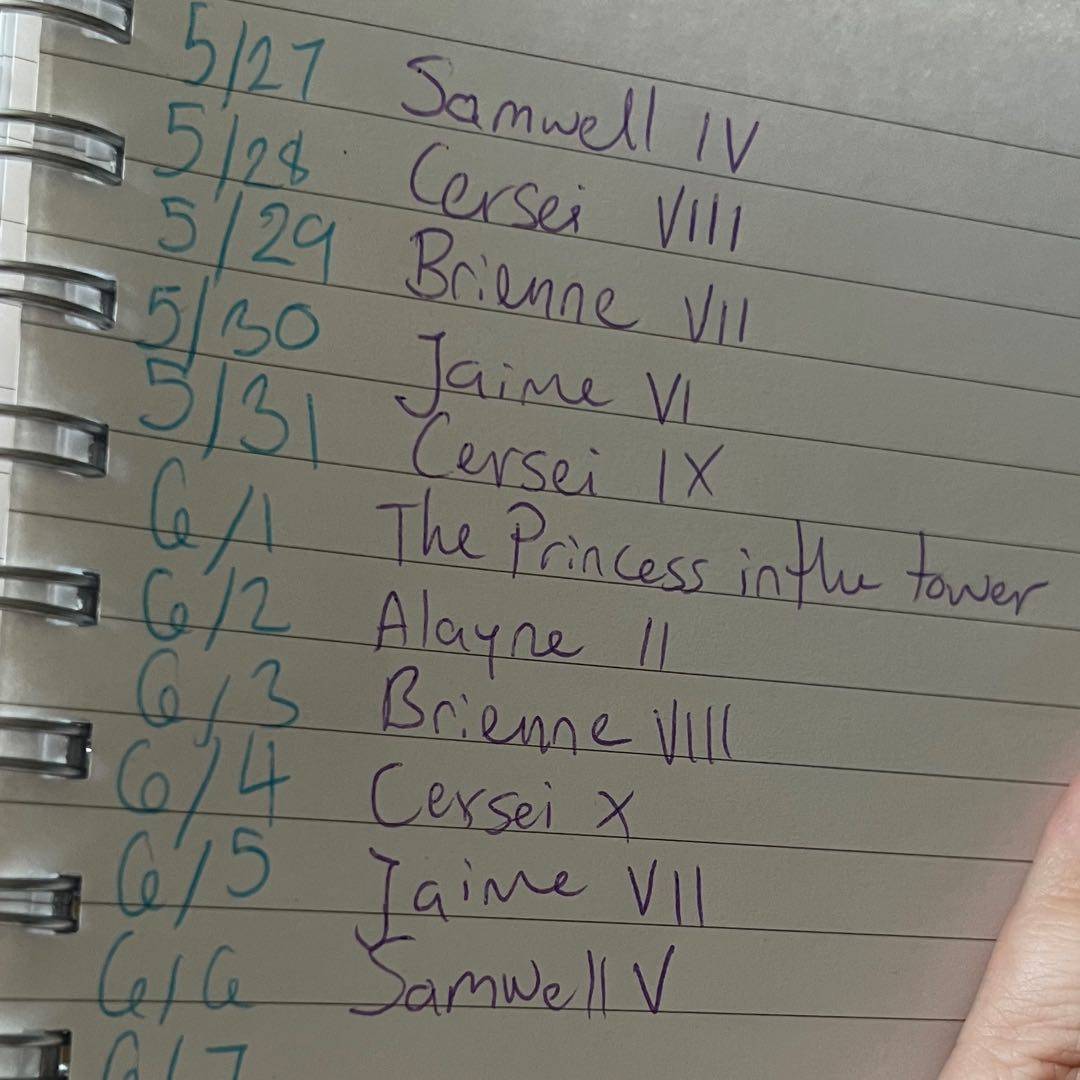 5/27 Samwell IV
5/28 Cersei VIII
5/29 Brienne VII
5/30 Jaime VI
5/31 Cersei IX
6/1 The Princess in the tower
6/2 Alayne II
6/3 Brienne VIII
6/4 Cersei X
6/5 Jaime VII
6/6 Samwell V
6/7